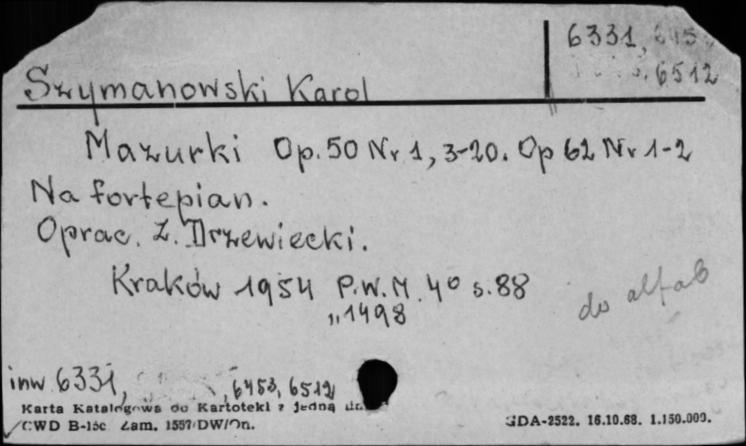 6331, 645
6512
Szymanowski Karol
Mazurki Op. 50 Nr 1, 3-20. Op 62 Nr 1-2
Na fortepian.
Oprac. Z. Drzewiecki.
Kraków 1954 P.W.M. 4° s. 88
"1498
do alfab
inw 6331, 6453, 6512
Karta Katalogowa do Kartoteki z jedną
CWD B-15c Zam. 1557/DW/On. GDA-2522. 16.10.68. 1.150.000.